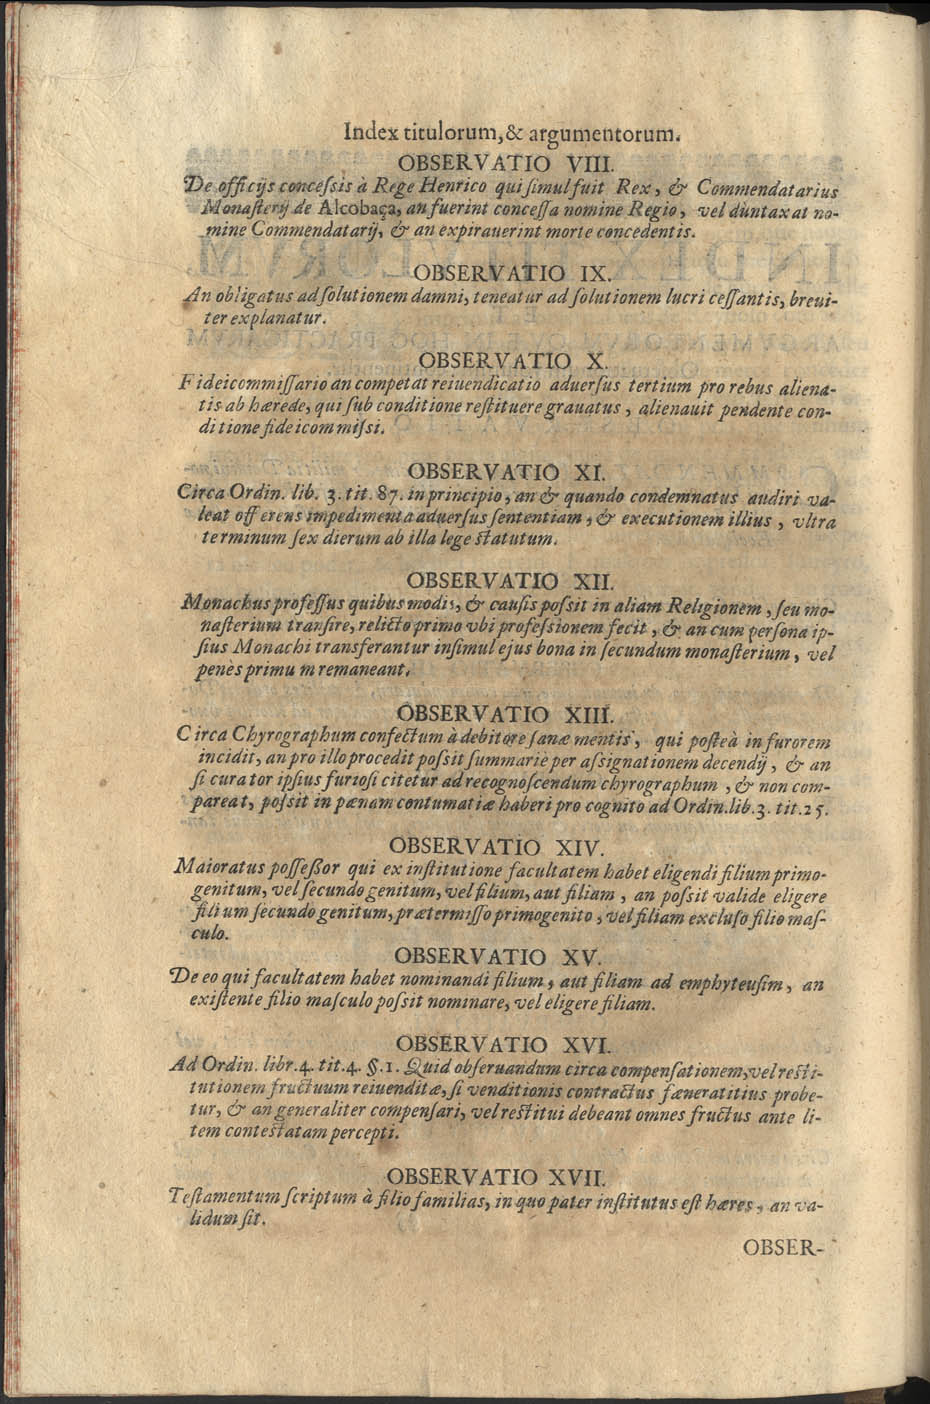 Index titulorum, & argumentorum.
OBSERVATIO VIII.
De officijs concessis à Rege Henrico qui simul fuit Rex, & Commendatarius
Monasterij de Alcobaça, an fuerint concessa nomine Regio, vel dùntaxat no-
mine Commendatarij, & an expirauerint morte concedentis.
OBSERVATIO IX.
An obligatus ad solutionem damni, teneatur ad solutionem lucri cessantis, breui-
ter explanatur.
OBSERVATIO X.
Fideicommissario an competat reiuendicatio aduersus tertium pro rebus aliena-
tis ab hærede, qui sub conditione restituere grauatus, alienauit pendente con-
ditione fideicommissi.
OBSERVATIO XI.
Circa Ordin. lib. 3. tit. 87. in principio, an & quando condemnatus audiri va-
leat offerens impedimenta aduersus sententiam, & executionem illius, vltra
terminum sex dierum ab illa lege statutum.
OBSERVATIO XII.
Monachus professus quibus modis, & causis possit in aliam Religionem, seu mo-
nasterium transire, relicto primo vbi professionem fecit, & an cum persona ip-
sius Monachi transferantur insimul ejus bona in secundum monasterium, vel
penès primum remaneant.
OBSERVATIO XIII.
Circa Chyrographum confectum à debitore sanæ mentis, qui posteà in furorem
incidit, an pro illo procedit possit summarie per assignationem decendij, & an
si curator ipsius furiosi citetur ad recognoscendum chyrographum, & non com-
pareat, possit in pœnam contumatiæ haberi pro cognito ad Ordin. lib. 3. tit. 25.
OBSERVATIO XIV.
Maioratus possessor qui ex institutione facultatem habet eligendi filium primo-
genitum, vel secundo genitum, vel filium, aut filiam, an possit valide eligere
filium secundo genitum, prætermisso primogenito, vel filiam excluso filio mas-
culo.
OBSERVATIO XV.
De eo qui facultatem habet nominandi filium, aut filiam ad emphyteusim, an
existente filio masculo possit nominare, vel eligere filiam.
OBSERVATIO XVI.
Ad Ordin. libr. 4. tit. 4. §. 1. Quid obseruandum circa compensationem, vel resti-
tutionem fructuum reiuenditæ, si venditionis contractus fæneratitius probe-
tur, & an generaliter compensari, vel restitui debeant omnes fructus ante li-
tem contestatam percepti.
OBSERVATIO XVII.
Testamentum scriptum à filio familias, in quo pater institutus est hæres, an va-
lidum sit.
OBSER-